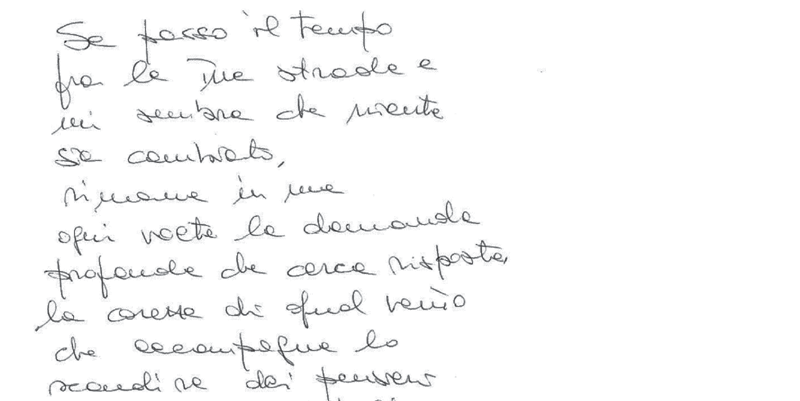 Se passo il tempo
fra le tue strade e
mi sembra che niente
sia cambiato,
rimane in me
ogni volta la domanda
profonda che cerca risposta,
la carezza di quel vento
che accompagna lo
scandire dei pensieri